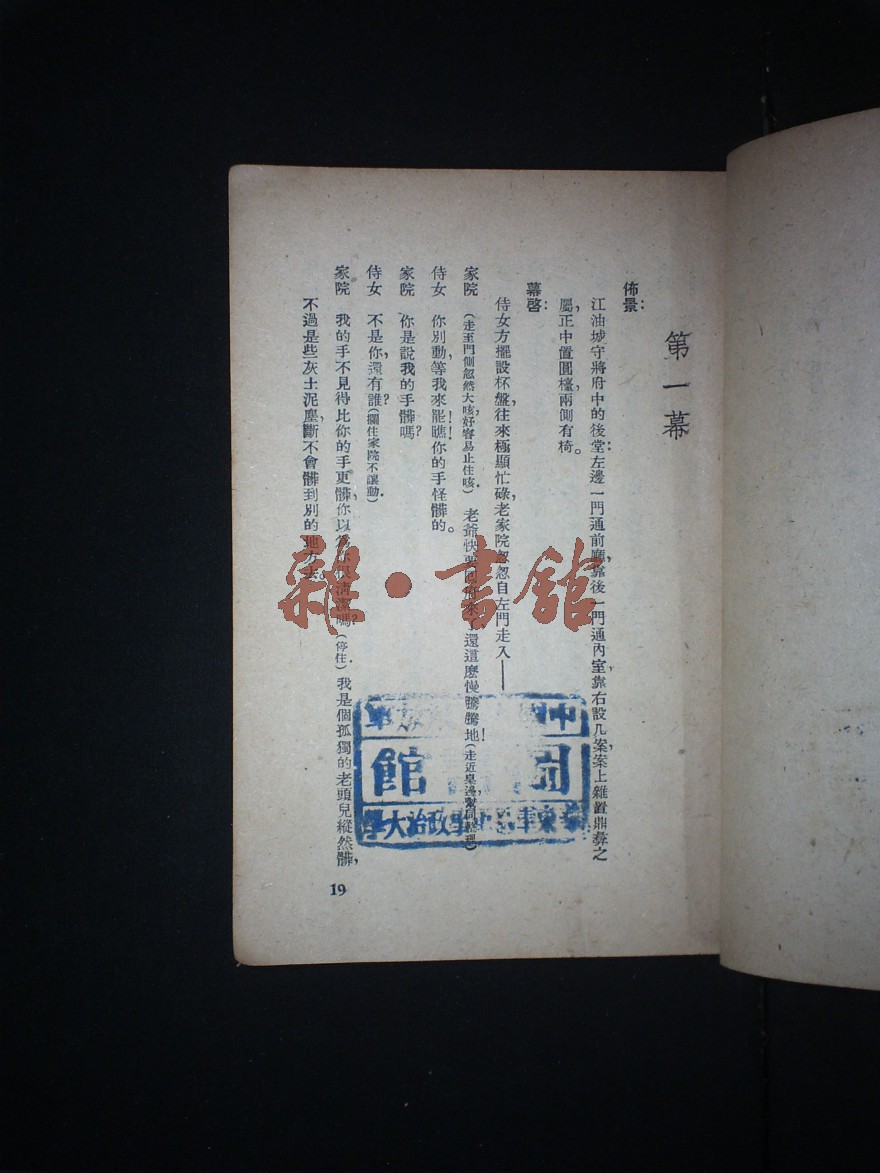 第一幕
佈景：
江油城守將府中的後堂：左邊一門通前廳，靠後一門通內室，靠右設几案，案上雜置鼎彝之
屬，正中置圓檯，兩側有椅。
幕啓：
侍女方擺設杯盤，往來極顯忙碌，老家院忽忽自左門走入——
家院 （走至門側忽然大咳，好容易止住咳．）老爺快要回府來了，還這麼慢騰騰地！（走近桌邊幫同整理）
侍女 你別動，等我來罷！瞧你的手！怪髒的。
家院 你是說我的手髒嗎？
侍女 不是你，還有誰？（攔住家院不讓動．）
家院 我的手不見得比你的手更髒，你以為你很清潔嗎？（停住．）我是個孤獨的老頭兒，縱然髒，
不過是些灰土泥塵，斷不會髒到別的地方去。
19
雜·書館
館
政治大學